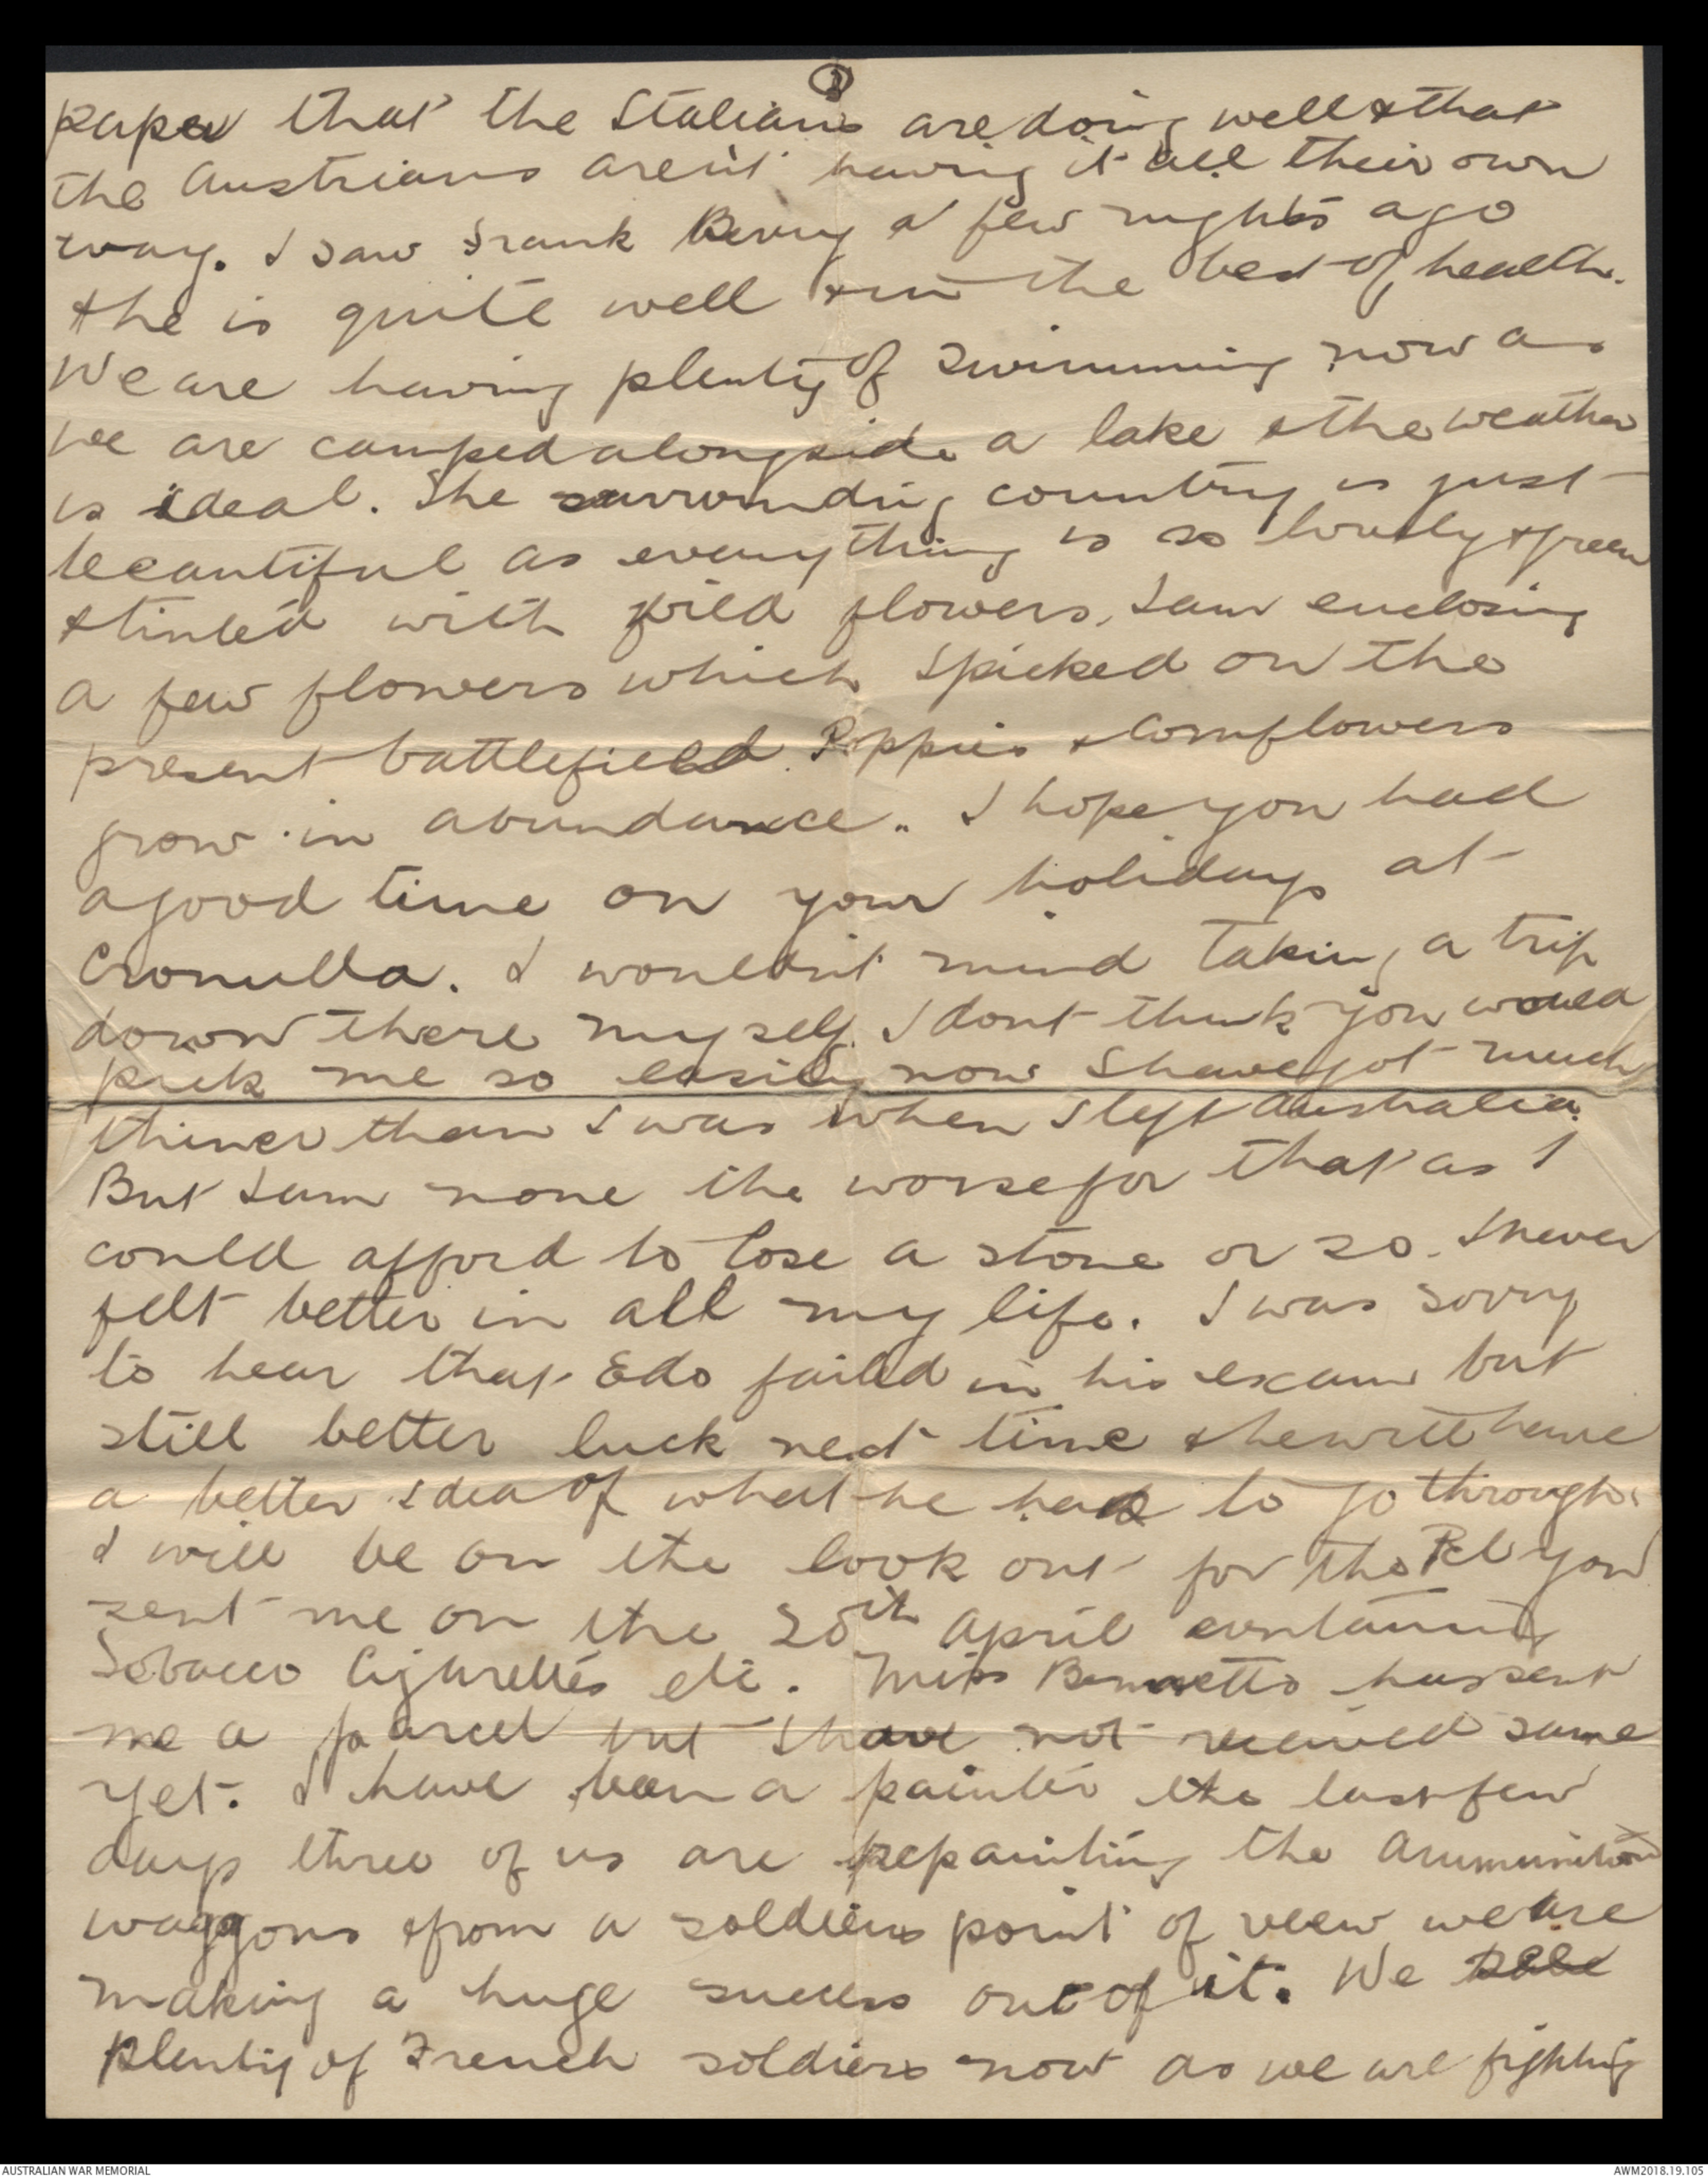 3
paper that the Italians are doing well & that
the Austrians aren't having it all their own
way. I saw Frank Berry a few nights ago
& he is quite well & in the best of health.
We are having plenty of swimming now as
we are camped alongside a lake & the weather
is ideal. The surrounding country is just
beautiful as everything is so lovely & green
& tinted with wild flowers, I am enclosing
a few flowers which I picked on the
present battlefield. Poppies & Cornflowers
grow in abundance. I hope you had
a good time on your holidays at
Cronulla. I wouldn't mind taking a trip
down there myself. I dont think you would
pick me so easily now I have got much
thiner than I was when I left Australia.
But I am none the worse for that as I
could afford to lose a stone or so. I never
felt better in all my life. I was sorry
to hear that Edo failed in his exam but
still better luck next time & he will have
a better idea of what he has to go through.
I will be on the look out for the Pcl you
sent me on the 20th April containing
Tobacco Cigarettes etc. Miss has sent
me a parcel but I have not received same
yet. I have been a painter the last few
days three of us are repainting the Ammunition
waggons & from a soldiers point of view we are
making a huge success out of it. We see
plenty of French soldiers now as we are fighting
AUSTRALIAN WAR MEMORIAL
AWM2018.19.105